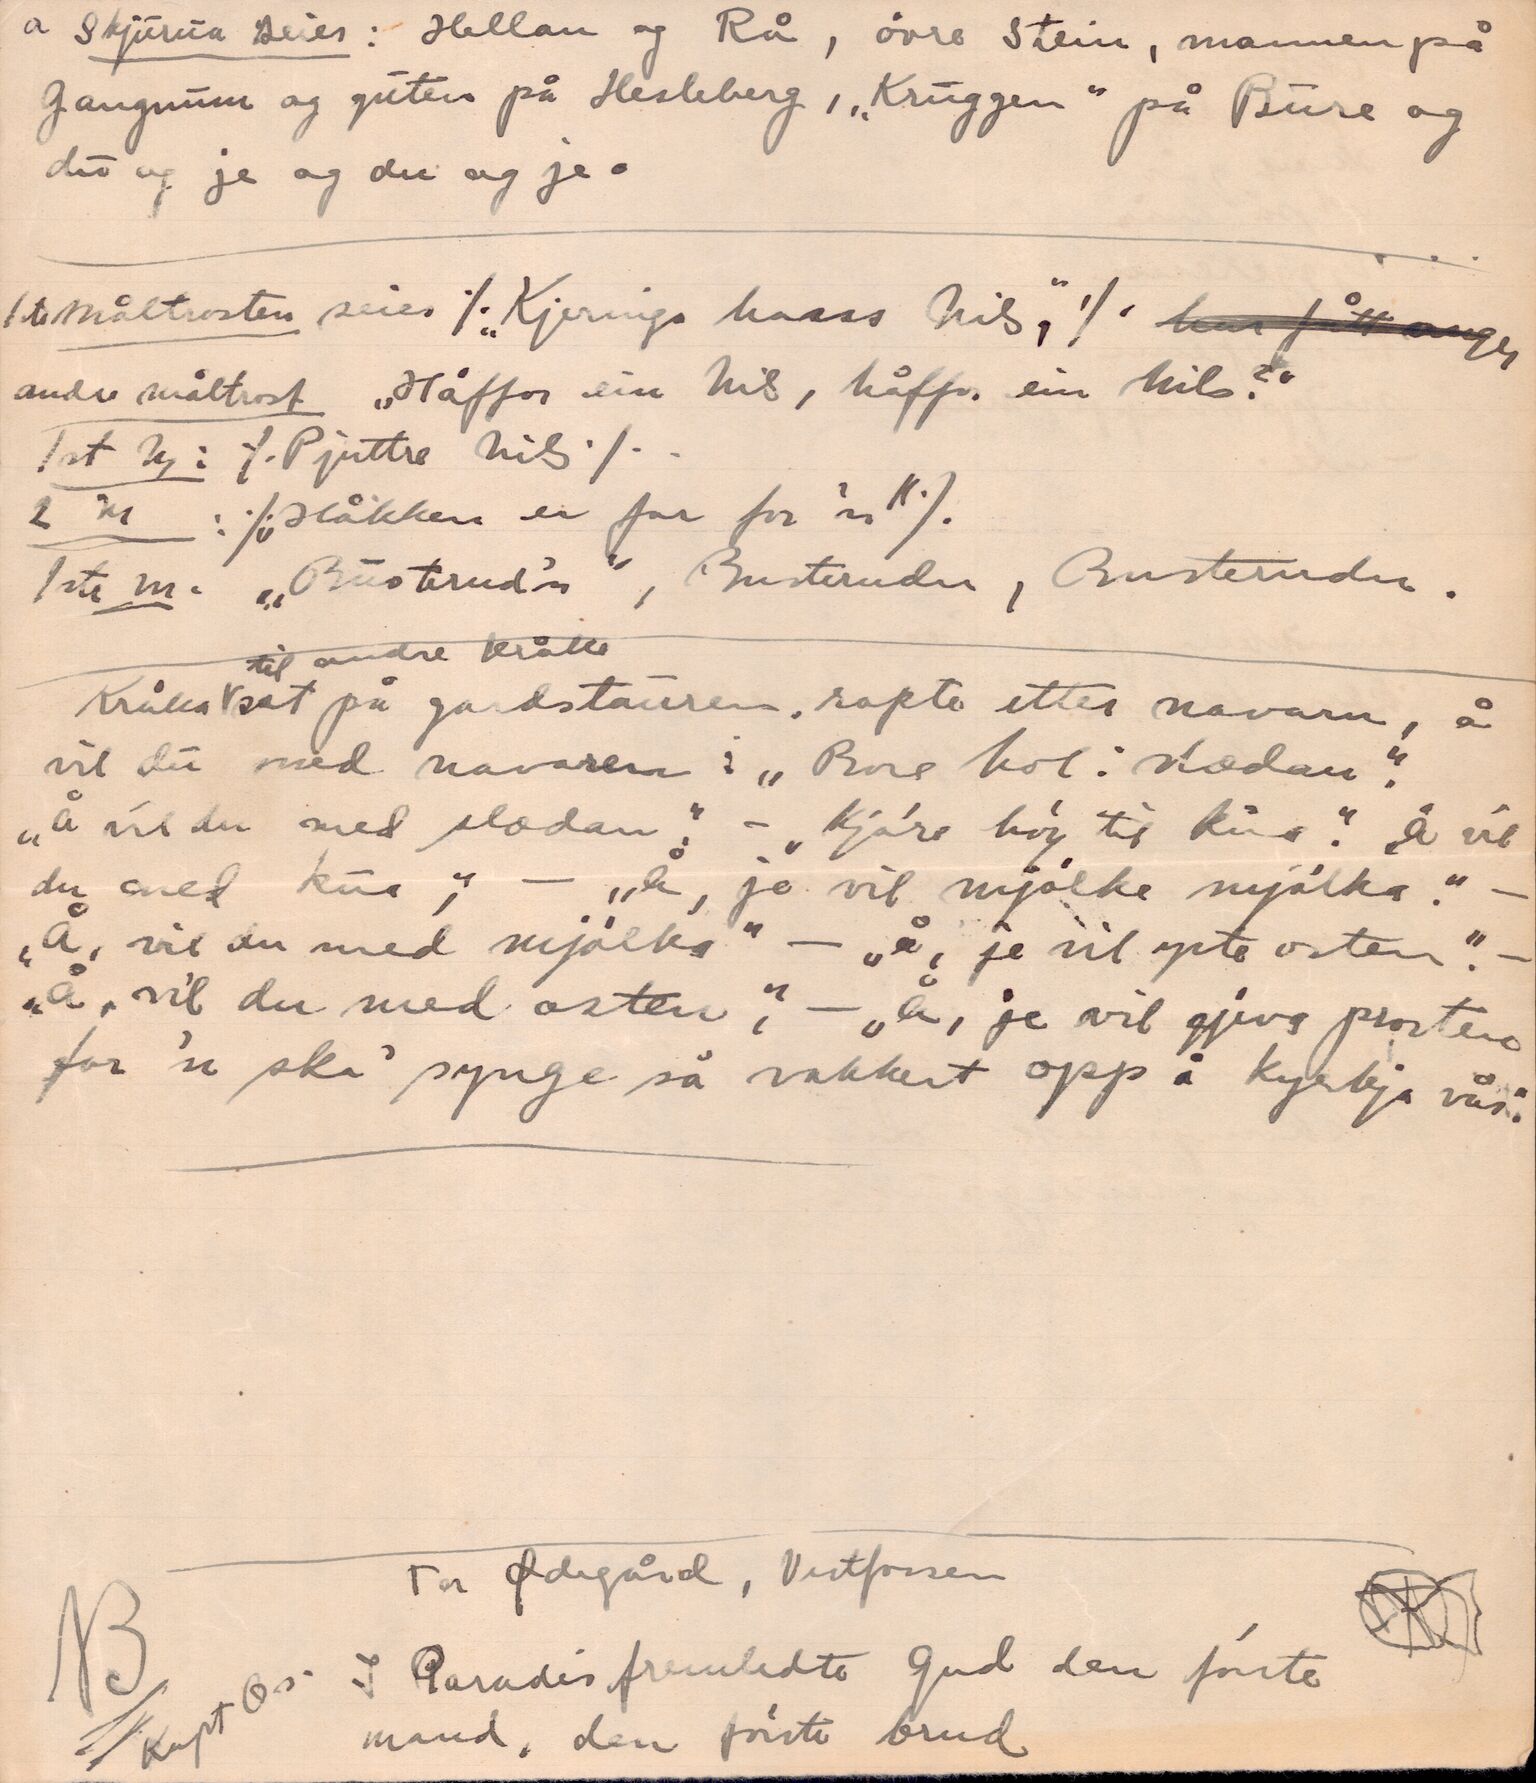 a Skjurua seies: Hellan og Rå, övre Stein, mannen på
Gangnum og guten på Hesleberg, „Kruggen“ på Bure og
du og je og du og je.
1ste Måltrosten seies ·/· „Kjerringa hasss Nils,“ ·/·
andre måltrost „Håffor ein Nils, håffor ein Nils?“
1st M: ·/· Pjuttre Nils ·/·
2 M : ·/· „Håkken er far for 'n“ ·/·
1ste M: „Busterud'n“, Busterudn, Busterudn.
til andre kråke
Kråka sat på gardstauren. ropte etter navarn, å
vil du med navaren: „Bore hol i slædan“.
„Å vil du med slædan“. – „Kjöre höy til kua“. Å vil
du med kua“, – „Å, je vil mjölke mjölka“. –
„Å, vil du med mjölka“ – „Å, je vil yste osten“. –
„Å, vil du med osten“, – „Å, je vil gjeva prosten
for 'n ska' synge så vakkert opp i kyrkja vår.
Tor Ødegård, Vestfossen
NB
Kapt Os. I Paradis fremledte Gud den förste
mand, den förste brud